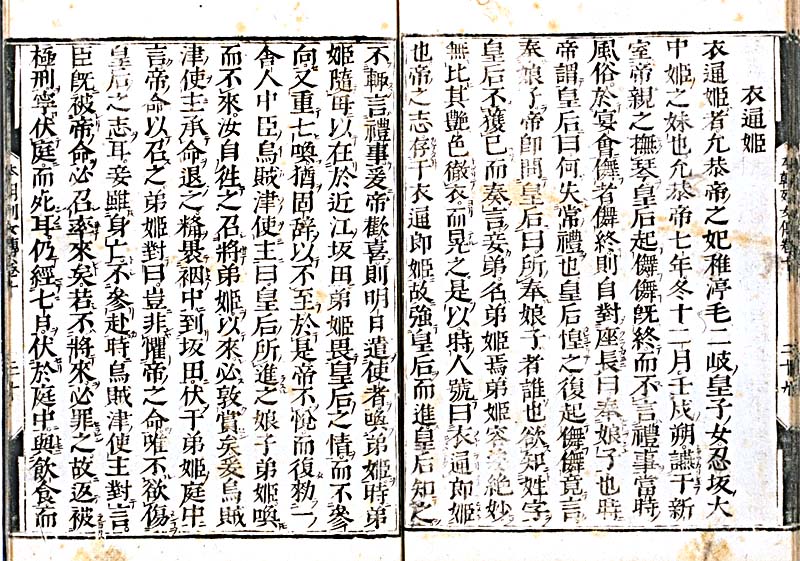 衣通姬
衣通姬者允恭帝之妃稚渟毛二岐皇子女忍坂大
中姬之妹也允恭帝七年冬十二月壬戌朔讌于新
室帝親之撫琴皇后起儛儛既終而不言禮事當時
風俗於宴會儛者儛終則自對座長曰奉娘子也時
帝謂皇后曰何失常禮也皇后惶之復起儛儛竟言
奉娘子帝即問皇后曰所奉娘子者誰也欲知姓字
皇后不獲已而奏言妾弟名弟姬焉弟姬容姿絶妙
無比其艶色徹衣而晃之是以時人號曰衣通郎姬
也帝之志存于衣通郎姬故強皇后而進皇后知之
不輙言禮事爰帝歡喜則明日遣使者喚弟姬時弟
姬隨母以在於近江坂田弟姬畏皇后之情而不參
向又重七喚猶固辭以不至於是帝不悅而復勅一
舍人中臣烏賊津使主曰皇后所進之娘子弟姬喚
而不來汝自徃之召將弟姬以來必敦賞矣爰烏賊
津使主承命退之糒褁裀中到坂田伏于弟姬庭中
言帝命以召之弟姬對曰豈非懼帝之命唯不欲傷
皇后之志耳妾雖身亡不參赴時烏賊津使主對言
臣既被帝命必召率來矣若不將來必罪之故返被
極刑寧伏庭而死耳仍經七日伏於庭中與飲食而